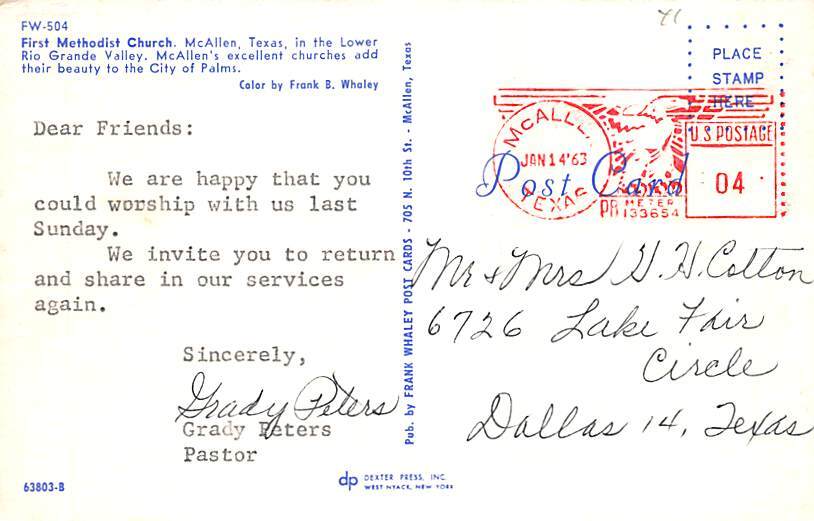 FW-504
First Methodist Church. McAllen, Texas, in the Lower
Rio Grande Valley. McAllen's excellent churches add
their beauty to the City of Palms.
Color by Frank B. Whaley
Dear Friends:
We are happy that you
could worship with us last
Sunday.
We invite you to return
and share in our services
again.
Sincerely,
Grady Peters
Grady Peters
Pastor
63803-B
Pub. by FRANK WHALEY POST CARDS - 705 N. 10th St. - McAllen, Texas
dp DEXTER PRESS, INC.
WEST NYACK, NEW YORK
PLACE
STAMP
HERE
McALLEN
JAN 14'63
TEXAS
PB METER
133654
U.S. POSTAGE
04
Post Card
Mr & Mrs H. H. Cotton
6726 Lake Fair
Circle
Dallas 14, Texas